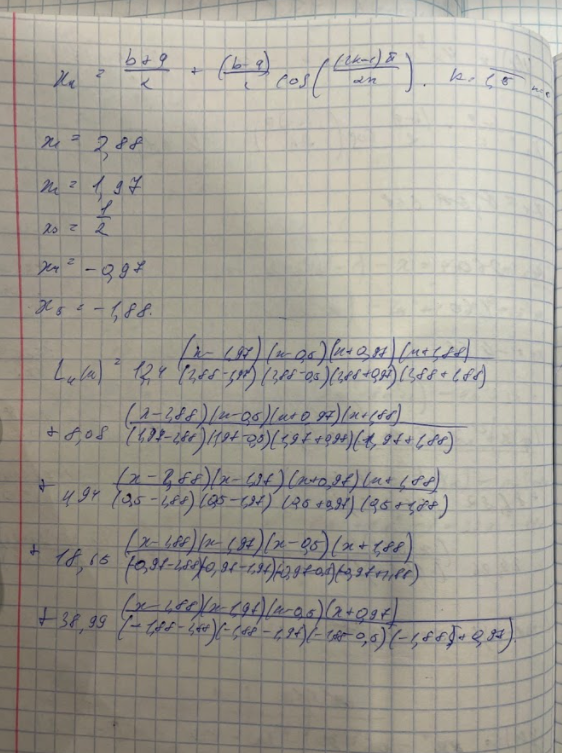 xₖ = (b+a)/2 + (b-a)/2 cos((2k-1)π/2n). k=1,5
x₁ = 2,88
x₂ = 1,97
x₃ = 1/2
x₄ = -0,97
x₅ = -1,88.
L₄(x) = 12,4 (x-1,97)(x-0,5)(x+0,97)(x+1,88)/(2,88-1,97)(2,88-0,5)(2,88+0,97)(2,88+1,88)
+ 8,08 (x-2,88)(x-0,5)(x+0,97)(x+1,88)/(1,97-2,88)(1,97-0,5)(1,97+0,97)(1,97+1,88)
+ 4,94 (x-2,88)(x-1,97)(x+0,97)(x+1,88)/(0,5-2,88)(0,5-1,97)(0,5+0,97)(0,5+1,88)
+ 18,65 (x-2,88)(x-1,97)(x-0,5)(x+1,88)/(-0,97-2,88)(-0,97-1,97)(-0,97-0,5)(-0,97+1,88)
+ 38,99 (x-2,88)(x-1,97)(x-0,5)(x+0,97)/(-1,88-2,88)(-1,88-1,97)(-1,88-0,5)(-1,88+0,97)